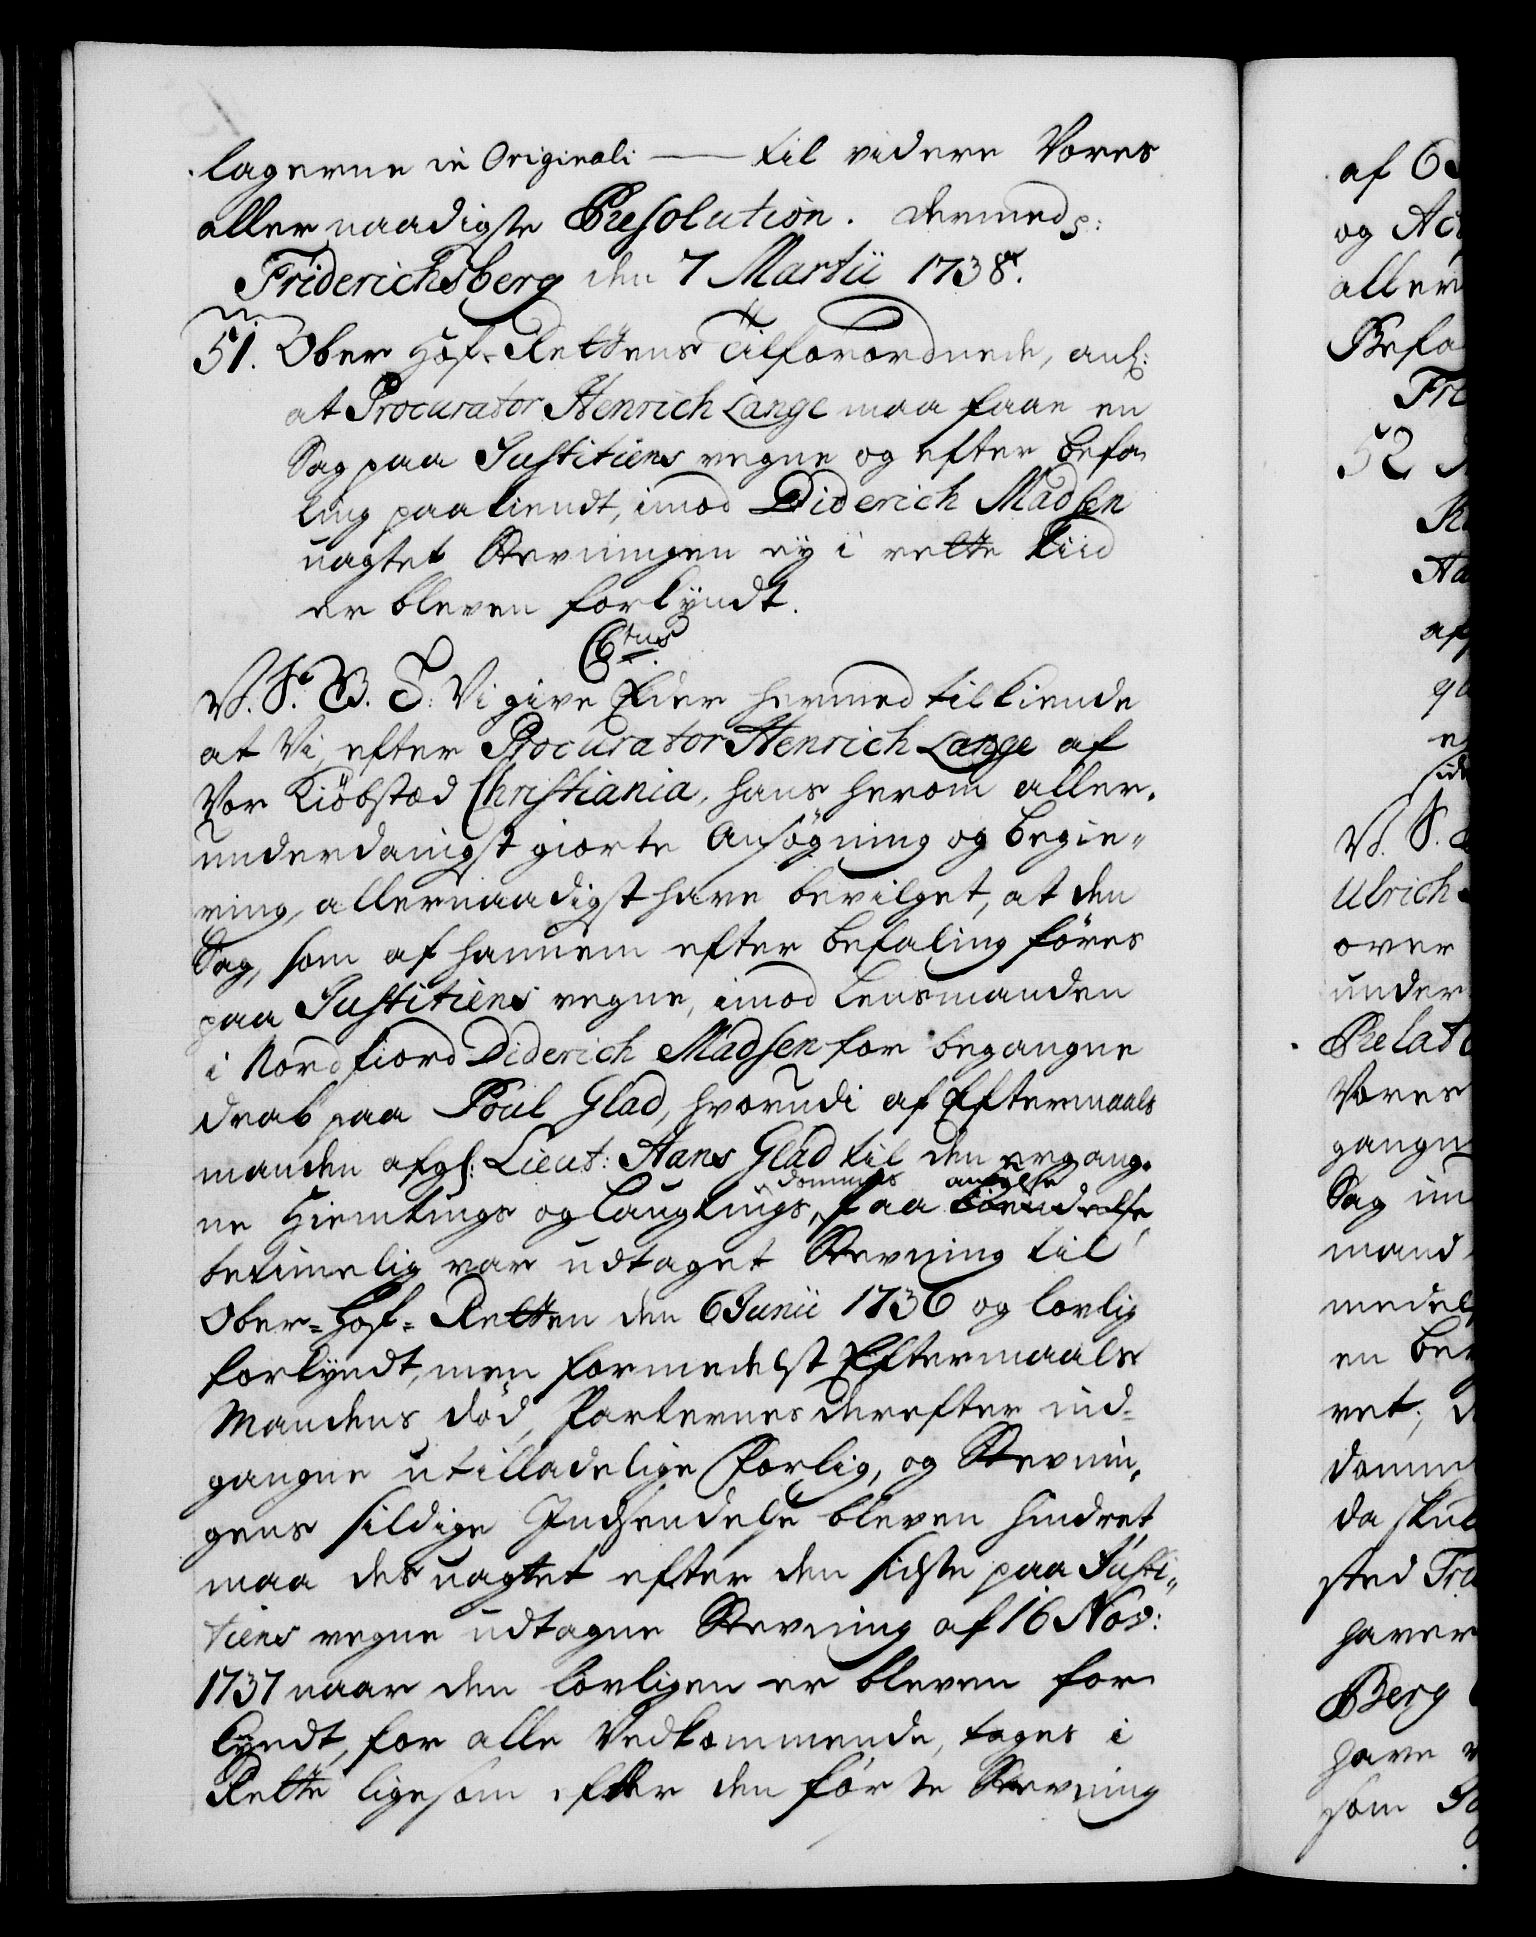 lagerne in Originali — til videre Vores
allernaadigste Resolution. dermed p:
Friderichsberg den 7 Martii 1738.
51. Ober Hof-Rettens Tilforordnede, anl:
at Procurator Henrich Lange maa faae en
Sag paa Justitiens vegne og efter befa-
ling paakiendt, imod Diderich Madsen
uagtet Stevningen ey i rette tiid
er bleven forkyndt.
C6tus
V. S. G. T: Vi give Eder hermed tilkiende
at Vi, efter Procurator Henrich Lange af
Vor Kiöbstæd Christiania, hans herom aller-
underdanigst giorte Ansögning og begie-
ring, allernaadigst have bevilget, at den
Sag, som af hannem efter befaling föres
paa Justitiens vegne, imod Lensmanden
i Nordfiord Diderich Madsen for begangne
drab paa Poul Glad, hvorudi af Eftermaals
manden afgl: Lieut: Hans Glad til den ergang-
ne Hiemtings og Laugtings domme's paa ankelse kiendelse
betimelig var udtaget Stevning til
Ober-Hof-Retten den 6 Junii 1736 og lovlig
forkyndt, men formedelst Eftermaals
Mandens död, Parternes derefter ind-
gangne utilladelige Forlig, og Stevnin-
gens sildige Indsendelse bleven hindret,
maa des uagtet efter den sidste paa Justi-
tiens vegne udtagne Stevning af 16 Nov:
1737 naar den lovligen er bleven for-
kyndt, for alle Vedkommende, tages i
Rette ligesom efter den förste Stevning
af
og
aller
Befa
52
V. S.
Ulrich
over
under
Relat
Vores
gangn
Sag im
mand
medel
en ber
ret;
domm
da skul
sted
haver
Berg
have
som